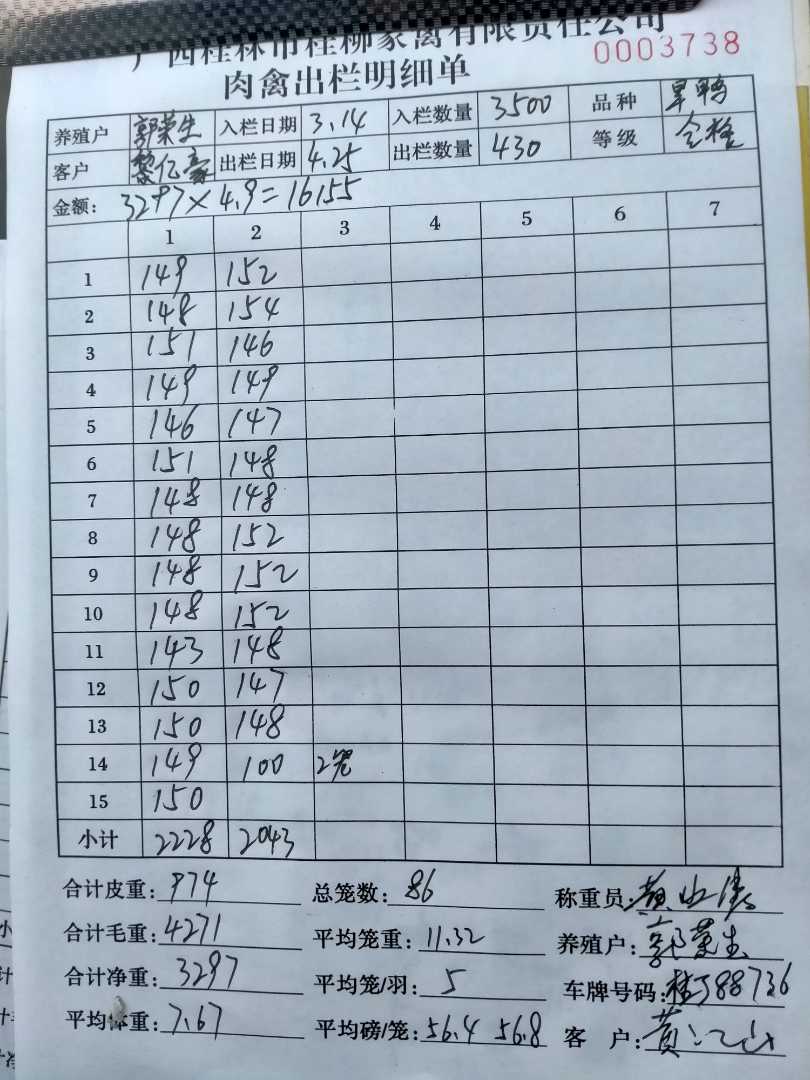 广西桂林市桂柳家禽有限责任公司
肉禽出栏明细单 0003738
养殖户 郭荣生 入栏日期 3.14 入栏数量 3500 品种 旱鸭
客户 黎亿豪 出栏日期 4.25 出栏数量 430 等级 合格
金额: 3297×4.9=16155
1 2 3 4 5 6 7
1 149 152
2 148 154
3 151 146
4 149 149
5 146 147
6 151 148
7 148 148
8 148 152
9 148 152
10 148 152
11 143 148
12 150 147
13 150 148
14 149 100 2笼
15 150
小计 2228 2043
合计皮重: 974 总笼数: 86 称重员: 黄
合计毛重: 4271 平均笼重: 11.32 养殖户: 郭荣生
合计净重: 3297 平均笼/羽: 5 车牌号码: 88736
平均体重: 7.67 平均磅/笼: 56.4 56.8 客 户: 黄